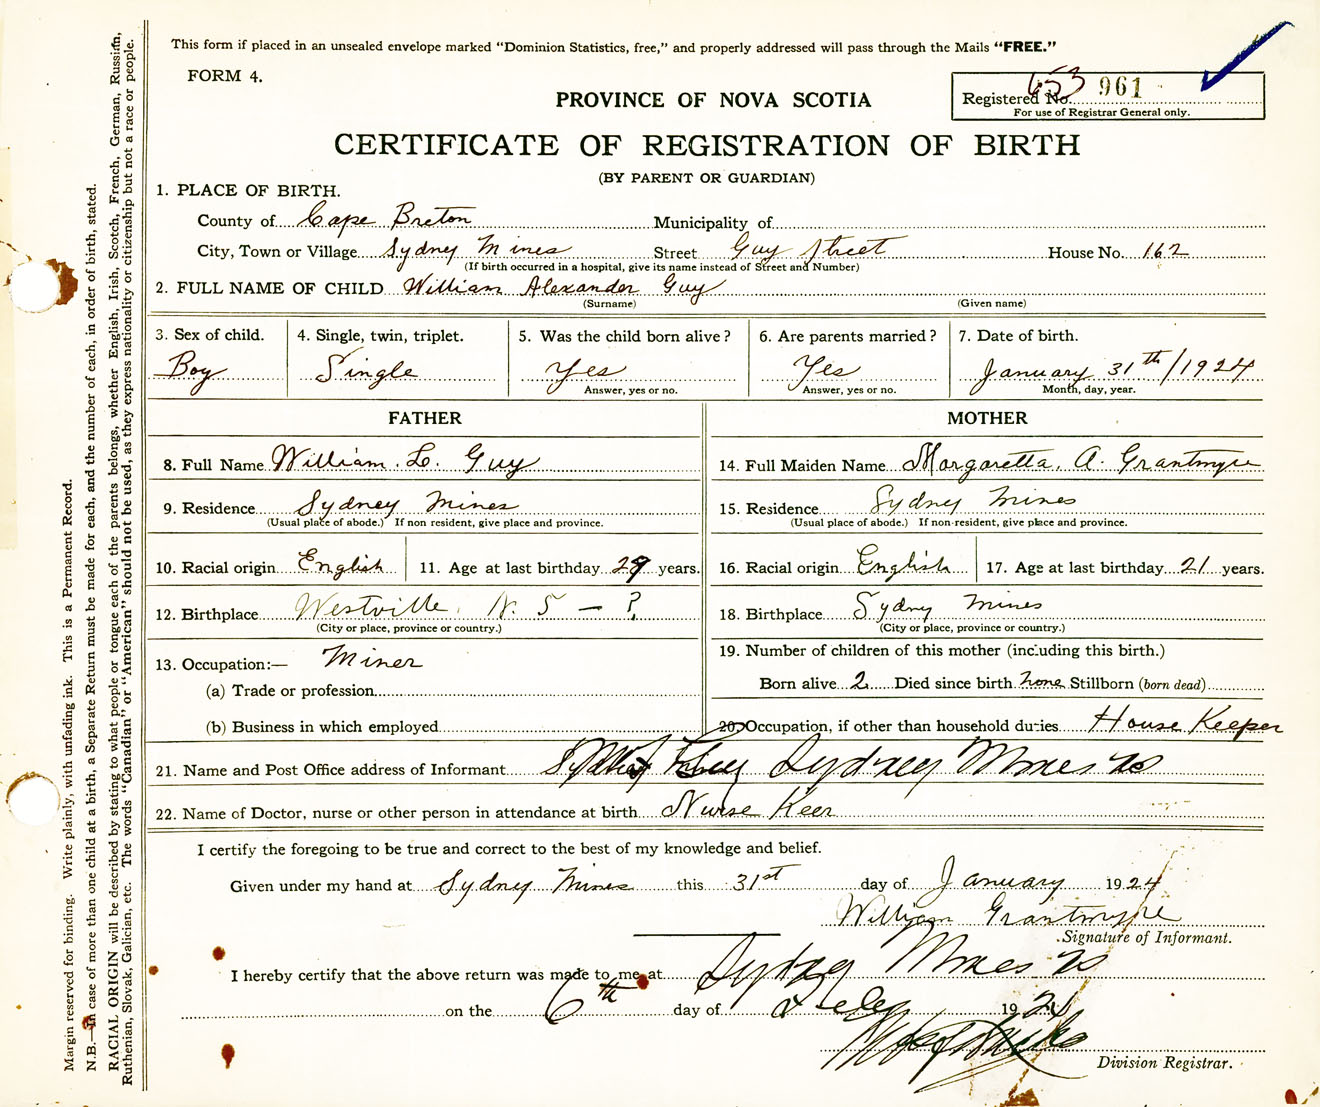 This form if placed in an unsealed envelope marked “Dominion Statistics, free,” and properly addressed will pass through the Mails “FREE.”
FORM 4.
653 961
Registered No.
For use of Registrar General only.
PROVINCE OF NOVA SCOTIA
CERTIFICATE OF REGISTRATION OF BIRTH
(BY PARENT OR GUARDIAN)
1. PLACE OF BIRTH.
County of Cape Breton Municipality of
City, Town or Village Sydney Mines Street Guy Street House No. 162
(If birth occurred in a hospital, give its name instead of Street and Number)
2. FULL NAME OF CHILD William Alexander Guy
(Surname) (Given name)
3. Sex of child. 4. Single, twin, triplet. 5. Was the child born alive? 6. Are parents married? 7. Date of birth.
Boy Single Yes Yes January 31th/1924
Answer, yes or no. Answer, yes or no. Month, day, year.
FATHER MOTHER
8. Full Name William. L. Guy 14. Full Maiden Name Margaretta. A. Grantmyre
9. Residence Sydney Mines 15. Residence Sydney Mines
(Usual place of abode.) If non resident, give place and province. (Usual place of abode.) If non-resident, give place and province.
10. Racial origin English 11. Age at last birthday 29 years. 16. Racial origin English 17. Age at last birthday 21 years.
12. Birthplace Westville, N. S — ? 18. Birthplace Sydney Mines
(City or place, province or country.) (City or place, province or country.)
13. Occupation:— Miner 19. Number of children of this mother (including this birth.)
(a) Trade or profession Born alive 2 Died since birth none Stillborn (born dead)
(b) Business in which employed 20. Occupation, if other than household duties House Keeper
21. Name and Post Office address of Informant Sydney Mines NS
22. Name of Doctor, nurse or other person in attendance at birth Nurse Keer
I certify the foregoing to be true and correct to the best of my knowledge and belief.
Given under my hand at Sydney Mines this 31st day of January 1924
William Grantmyre
Signature of Informant.
I hereby certify that the above return was made to me at Sydney Mines NS
on the 6th day of Feby 1924
Division Registrar.
Margin reserved for binding. Write plainly, with unfading ink. This is a Permanent Record.
N.B.—In case of more than one child at a birth, a Separate Return must be made for each, and the number of each, in order of birth, stated.
RACIAL ORIGIN will be described by stating to what people or tongue each of the parents belongs, whether English, Irish, Scotch, French, German, Russian,
Ruthenian, Slovak, Galician, etc. The words “Canadian” or “American” should not be used, as they express nationality or citizenship but not a race or people.